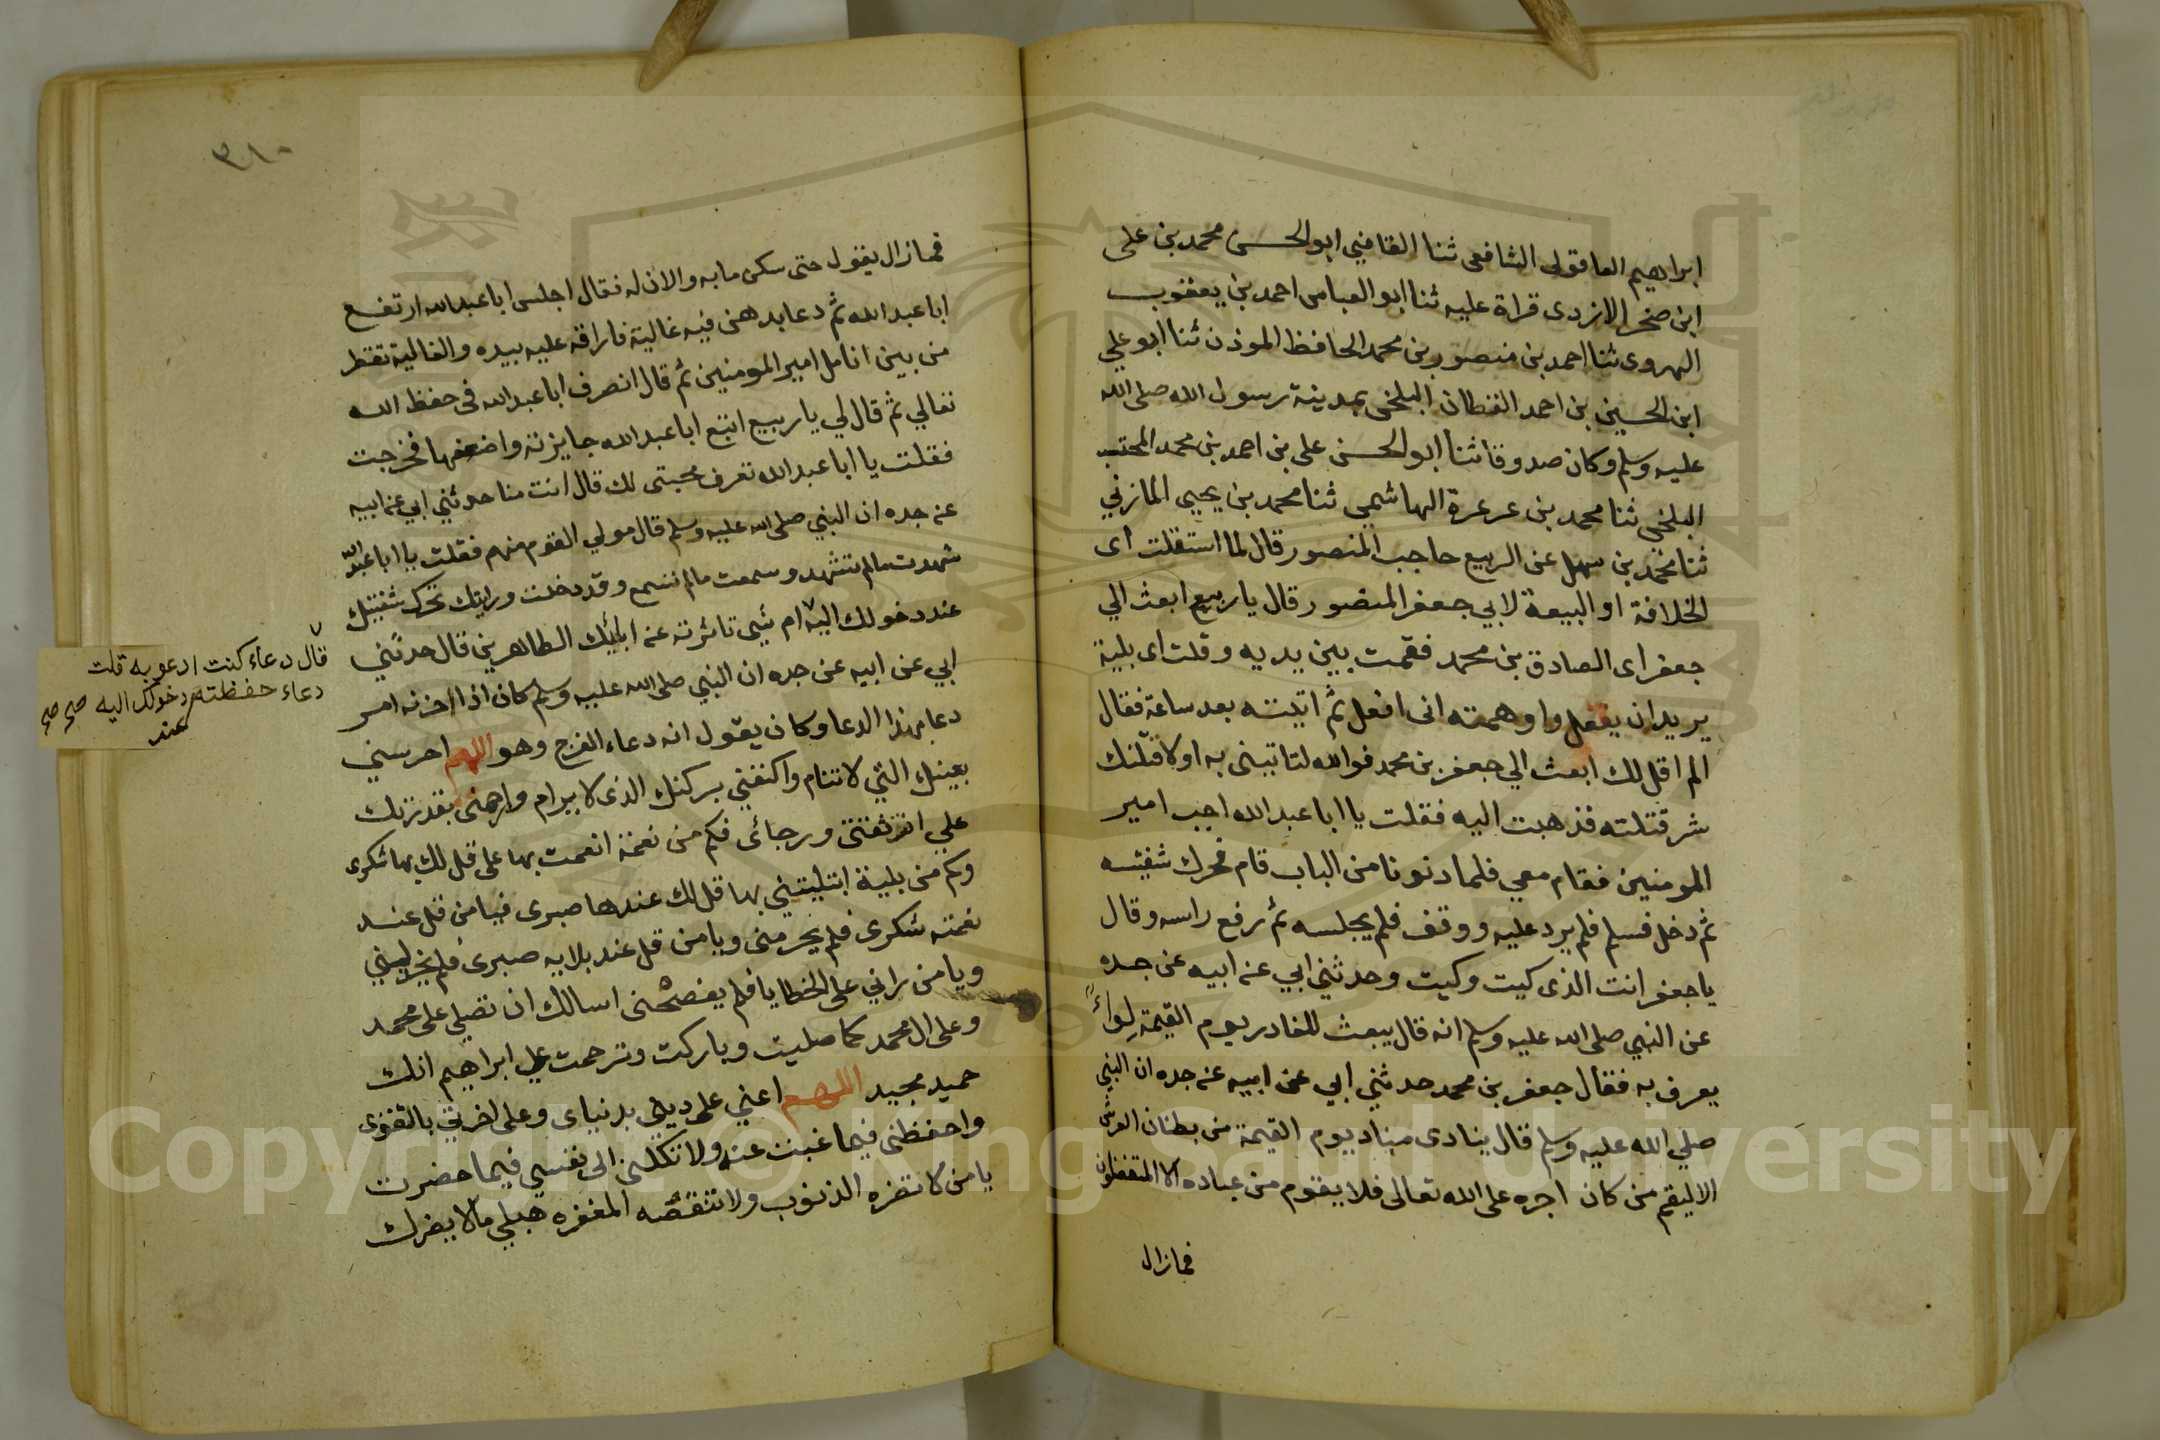 ابراهيم العاقولى الشافعى ثنا القاضي ابو الحسن محمد بن على
ابن صخر الازدى قراة عليه ثنا ابو العباس احمد بن يعقوب
الهروى ثنا احمد بن منصور بن محمد الحافظ الموذن ثنا ابو علي
ابن الحسين بن احمد القطان البلخى بمدينة رسول الله صلى الله
عليه وسلم وكان صدوقا ثنا ابو الحسن على بن احمد بن محمد المحتسب
البلخى ثنا محمد بن عرعرة الهاشمي ثنا محمد بن يحيى المازني
ثنا محمد بن سهل عن الربيع حاجب المنصور قال لما استقلت اى
الخلافة او البيعة لابي جعفر المنصور قال يا ربيع ابعث الي
جعفر اى الصادق بن محمد فقمت بين يديه وقلت اى بلية
يريد ان يفعل واوهمته انى افعل ثم اتيته بعد ساعة فقال
الم اقل لك ابعث الي جعفر بن محمد فوالله لتاتينى به اولا قتلنك
شر قتلته فذهبت اليه فقلت يا ابا عبد الله اجب امير
المومنين فقام معي فلما دنونا من الباب قام فحرك شفيته
ثم دخل فسلم فلم يرد عليه ووقف فلم يجلسه ثم رفع راسه وقال
يا جعفر انت الذى كيت وكيت وحدثني ابي عن ابيه عن جده
عن النبي صلى الله عليه وسلم انه قال يبعث للغادر يوم القيمة لواءً
يعرف به فقال جعفر بن محمد حدثني ابي عن ابيه عن جده ان النبي
صلي الله عليه وسلم قال ينادى مناد يوم القيمة من بطنان العرش
الا ليقم من كان اجره على الله تعالى فلا يقوم من عباده الا المتفضلون
فما زال
٣٨٠
فما زال يقول حتى سكن ما به والان له فقال اجلس ابا عبد الله ارتفع
ابا عبد الله ثم دعا بدهن فيه غالية فاراقه عليه بيده والغالية تقطر
من بين انامل امير المومنين ثم قال انصرف ابا عبد الله فى حفظ الله
تعالي ثم قال لي يا ربيع اتبع ابا عبد الله جايزته واضعفها فخرجت
فقلت يا ابا عبد الله تعرف محبتى لك قال انت منا حدثني ابي عن ابيه
عن جده ان النبي صلى الله عليه وسلم قال مولي القوم منهم فقلت يا ابا عبد الله
شهدت ما لم تشهد وسمعت ما لم تسمع وقد دخلت ورايتك تحرك شفتيك
عند دخولك اليه ام شي تاثرته عن ابائك الطاهرين قال حدثني
ابي عن ابيه عن جده ان النبي صلى الله عليه وسلم كان اذا احزنه امر
دعا بهذا الدعا وكان يقول انه دعاء الفرج وهو اللهم احرسني
بعينك التي لا تنام واكنفني بركنك الذى لا يرام وارحمنى بقدرتك
علي انت ثقتى ورجائى فكم من نعمة انعمت بها على قل لك بها شكرى
وكم من بلية ابتليتني بها قل لك عندها صبرى فيا من قل عند
نعمته شكرى فلم يحرمنى ويا من قل عند بلايه صبرى فلم يخذلني
ويا من راني على الخطايا فلم يفضحنى اسالك ان تصلي على محمد
وعلى ال محمد كما صليت وباركت وترحمت على ابراهيم انك
حميد مجيد اللهم اعني على ديني بدنياى وعلى اخرتي بالتقوى
واحفظنى فيما غبت عنه ولا تكلنى الى نفسي فيما حضرت
يا من لا تضره الذنوب ولا تنقصه المغفره هبلي ما لا يضرك
قال دعاء كنت ادعو به قلت
دعاء حفظته دخولك اليه صح صح
عند
Copyright © King Saud University